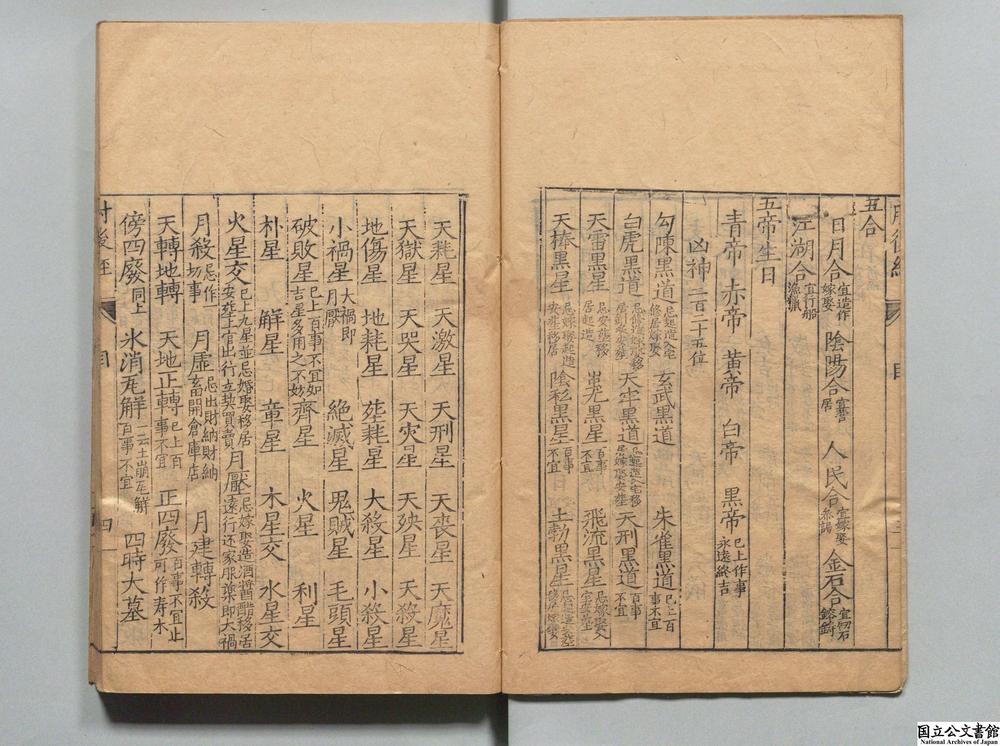 五合
日月合宜造作嫁娶 陰陽合宜造居 人民合宜嫁娶 金石合宜切石鎔鑄
江湖合宜行船漁獵
五帝生日
青帝 赤帝 黃帝 白帝 黑帝已上作事永遠終吉
凶神二百二十五位
勾陳黑道 玄武黑道 朱雀黑道已上百事不宜
白虎黑道 天牢黑道 天刑黑道百事不宜
天雷黑星 蚩尤黑星百事不宜 飛流黑星
天棒黑星 陰私黑星百事不宜 土勃黑星
天耗星 天激星 天刑星 天喪星 天魔星
天獄星 天哭星 天灾星 天殃星 天殺星
地傷星 地耗星 葬耗星 大殺星 小殺星
小禍星大禍即月厭 絕滅星 鬼賊星 毛頭星
破敗星已上百事不宜如吉星多用之不妨 齊星 火星 利星
朴星 觧星 章星 木星交 水星交
火星交已上九星並忌婚娶移居安葬上官出行立契買賣 月厭忌嫁娶造酒醬醋移居遠行还家服藥即大禍
月殺忌作切事 月虛忌出財納財納畜開倉庫店 月建轉殺
天轉地轉 天地正轉已上百事不宜 正四廢百事不宜止可作寿木
傍四廢同上 氷消瓦觧一云土崩瓦觧百事不宜 四時大墓
肘後經 目 四
国立公文書館
National Archives of Japan